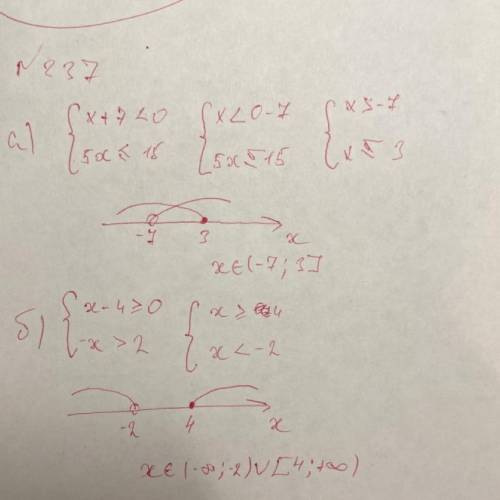 №237
а) { x+7<0 { x<0-7 { x>-7
5x≤15 5x≤15 x≤3
-7 3 x
x∈(-7; 3]
б) { x-4≥0 { x≥4
-x>2 x<-2
-2 4 x
x∈(-∞;-2)∪[4;+∞)